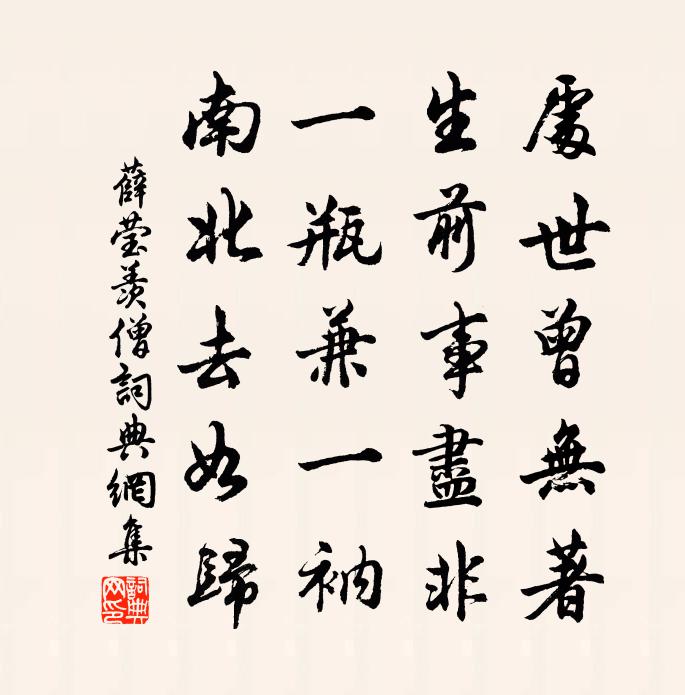 處世曾無著
生前事盡非
一瓶兼一衲
南北去如歸
薛瑩羨僧詞典網集
詞典网印